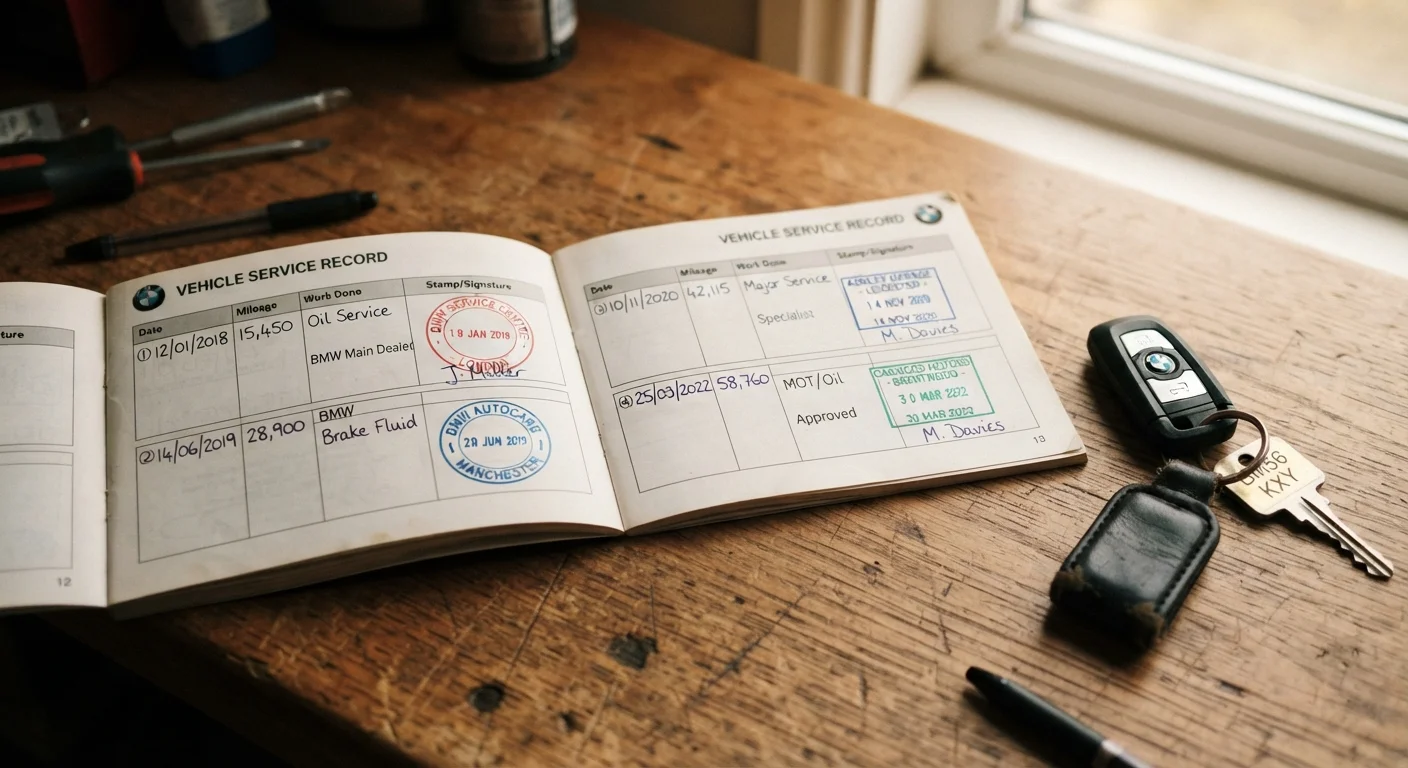 ture
12
VEHICLE SERVICE RECORD
Date Mileage Wurb Dono Stamp/Signature
① 12/01/2018 15,450 Oil Service
BMW Main Dealer
18 JAN 2018
② 14/06/2019 28,900 BMW
Brake Fluid
BMW AUTOCARE
28 JUN 2019
MANCHESTER
VEHICLE SERVICE RECORD
Date Mileage Work Done Stamp/Signature
③ 10/11/2020 42,115 Major Service
Specialist
M. Davies
④ 25/03/2022 58,760 MOT/Oil
Approved
30 MAR
M. Davies
13
KXY